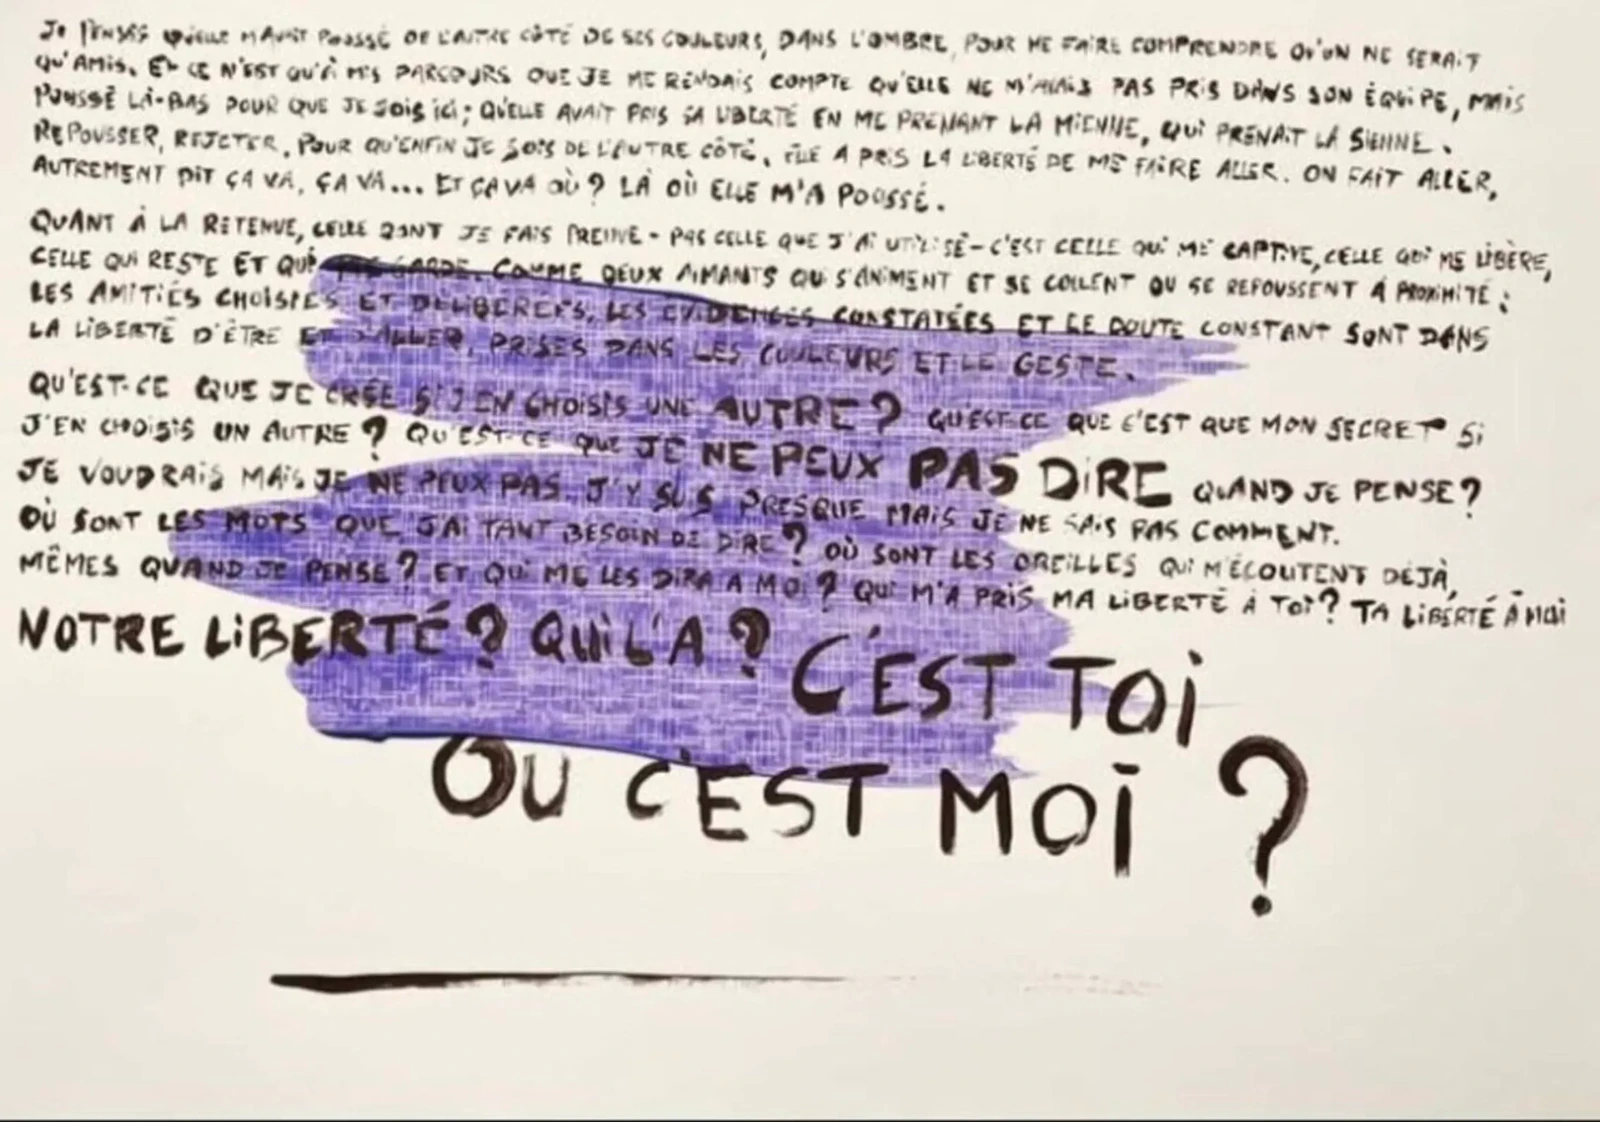 JE PENSAIS QU'ELLE M'AVAIT POUSSÉ DE L'AUTRE CÔTÉ DE SES COULEURS, DANS L'OMBRE, POUR ME FAIRE COMPRENDRE QU'ON NE SERAIT
QU'AMIS. ET CE N'EST QU'À MES PARCOURS QUE JE ME RENDAIS COMPTE QU'ELLE NE M'AVAIS PAS PRIS DANS SON ÉQUIPE, MAIS
POUSSÉ LÀ-BAS POUR QUE JE SOIS ICI ; QU'ELLE AVAIT PRIS SA LIBERTÉ EN ME PRENANT LA MIENNE, QUI PRENAIT LA SIENNE.
REPOUSSER, REJETER, POUR QU'ENFIN JE SOIS DE L'AUTRE CÔTÉ. ELLE A PRIS LA LIBERTÉ DE ME FAIRE ALLER. ON FAIT ALLER,
AUTREMENT DIT ÇA VA, ÇA VA... ET ÇA VA OÙ ? LÀ OÙ ELLE M'A POUSSÉ.
QUANT À LA RETENUE, CELLE DONT JE FAIS PREUVE - PAS CELLE QUE J'AI UTILISÉ - C'EST CELLE QUI ME CAPTIVE, CELLE QUI ME LIBÈRE,
CELLE QUI RESTE ET QUI GARDE. COMME DEUX AIMANTS QUI S'ANIMENT ET SE COLLENT OU SE REPOUSSENT À PROXIMITÉ :
LES AMITIÉS CHOISIES ET DÉLIBÉRÉES, LES EVIDENCES CONSTATÉES ET LE DOUTE CONSTANT SONT DANS
LA LIBERTÉ D'ÊTRE ET D'ALLER, PRISES DANS LES COULEURS ET LE GESTE.
QU'EST-CE QUE JE CRÉE SI J'EN CHOISIS UNE AUTRE ? QU'EST-CE QUE C'EST QUE MON SECRET SI
J'EN CHOISIS UN AUTRE ? QU'EST-CE QUE JE NE PEUX PAS DIRE QUAND JE PENSE ?
JE VOUDRAIS MAIS JE NE PEUX PAS. J'Y SUS PRESQUE MAIS JE NE SAIS PAS COMMENT.
OÙ SONT LES MOTS QUE J'AI TANT BESOIN DE DIRE ? OÙ SONT LES OREILLES QUI M'ÉCOUTENT DÉJÀ,
MÊMES QUAND JE PENSE ? ET QUI ME LES DIRA A MOI ? QUI M'A PRIS MA LIBERTÉ À TOI ? TA LIBERTÉ À MOI
NOTRE LIBERTÉ ? QUI L'A ? C'EST TOI
OU C'EST MOI ?